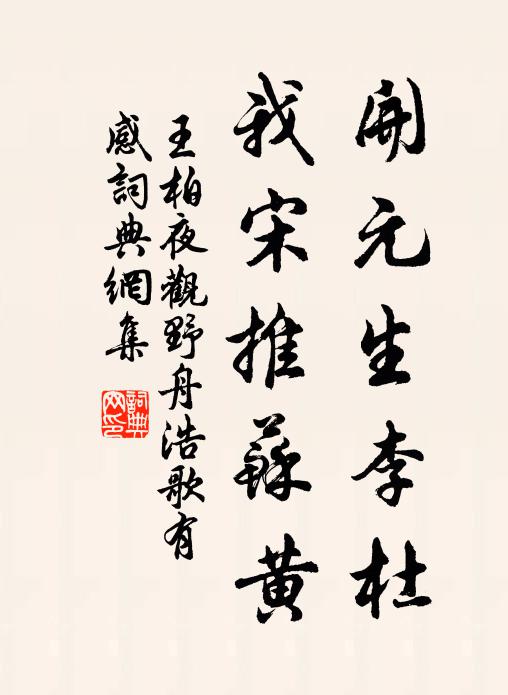 開元生李杜
我宋推蘇黄
王柏夜觀野舟浩歌有
感詞典網集
詞典網印